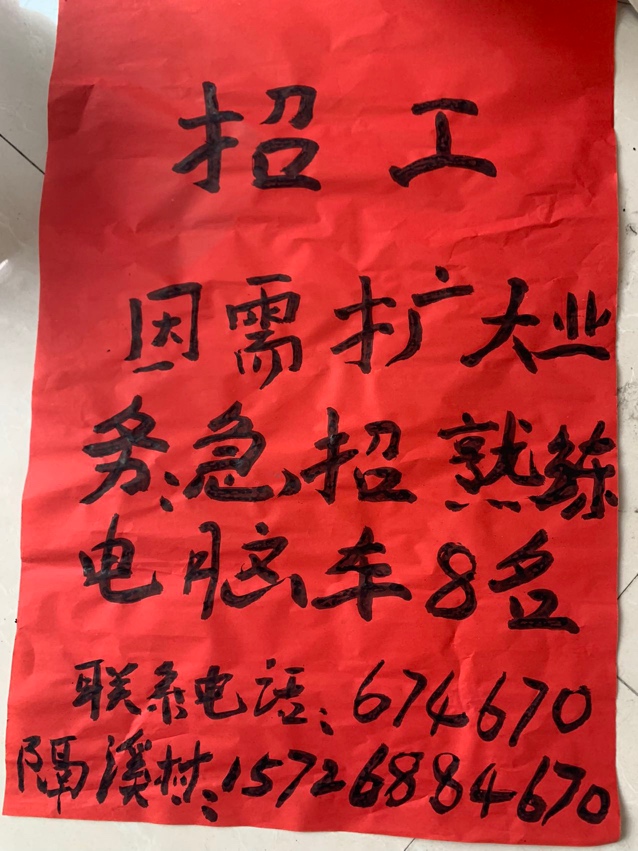 招工
因需扩大业
务、急招熟练
电脑车8名
联系电话:674670
隔溪村:15726884670